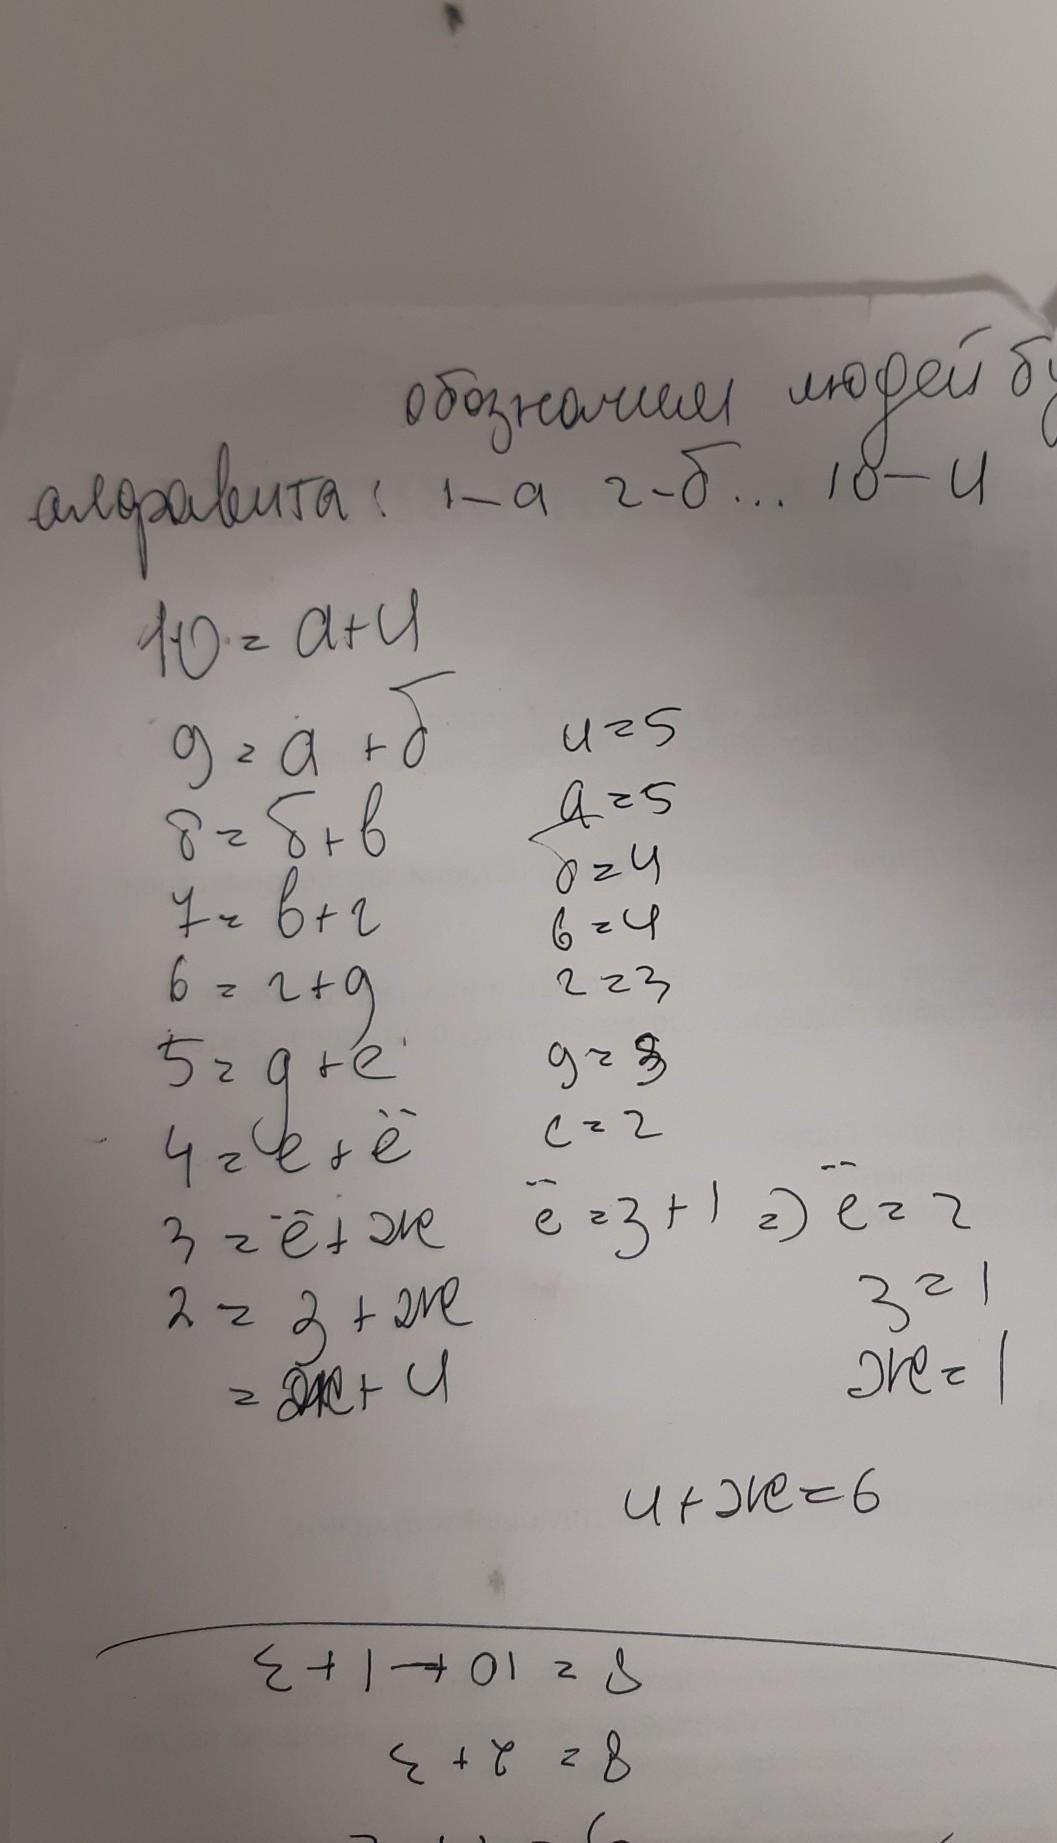 обозначим людей бу
алфавита: 1-а 2-б... 10-и
10 = а+и
9 = а + б
8 = б+в
7 = в+г
6 = г+д
5 = д+е
4 = е+ё
3 = ё+ж
2 = з + ж
= ж+ и
и=5
а=5
б=4
в=4
г=3
д=3
е=2
ё=3+1 => ё=2
з=1
ж=1
и+ж=6
8 = 10 + 1+3
8 = 2+3